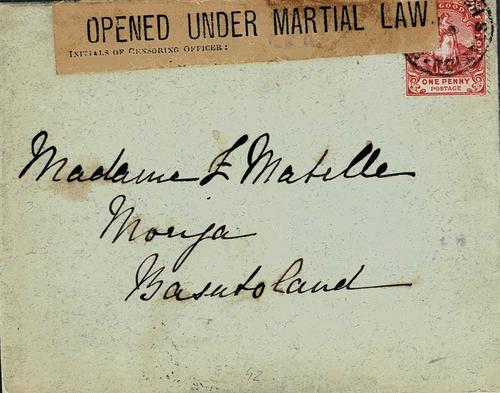 OPENED UNDER MARTIAL LAW.
INITIALS OF CENSORING OFFICER:
GOOD
ONE PENNY
POSTAGE
Madame F Mabille
Morija
Basutoland
42